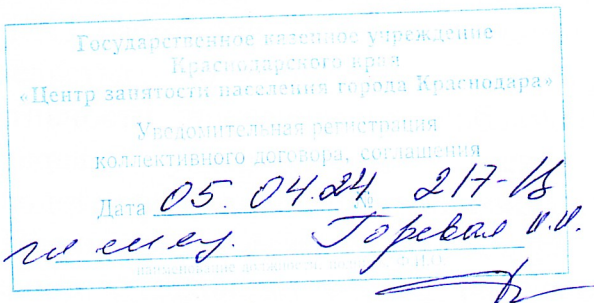 Государственное казенное учреждение
Краснодарского края
«Центр занятости населения города Краснодара»
Уведомительная регистрация
коллективного договора, соглашения
Дата 05.04.24 № 217-
Горевая И.И.
наименование должности,